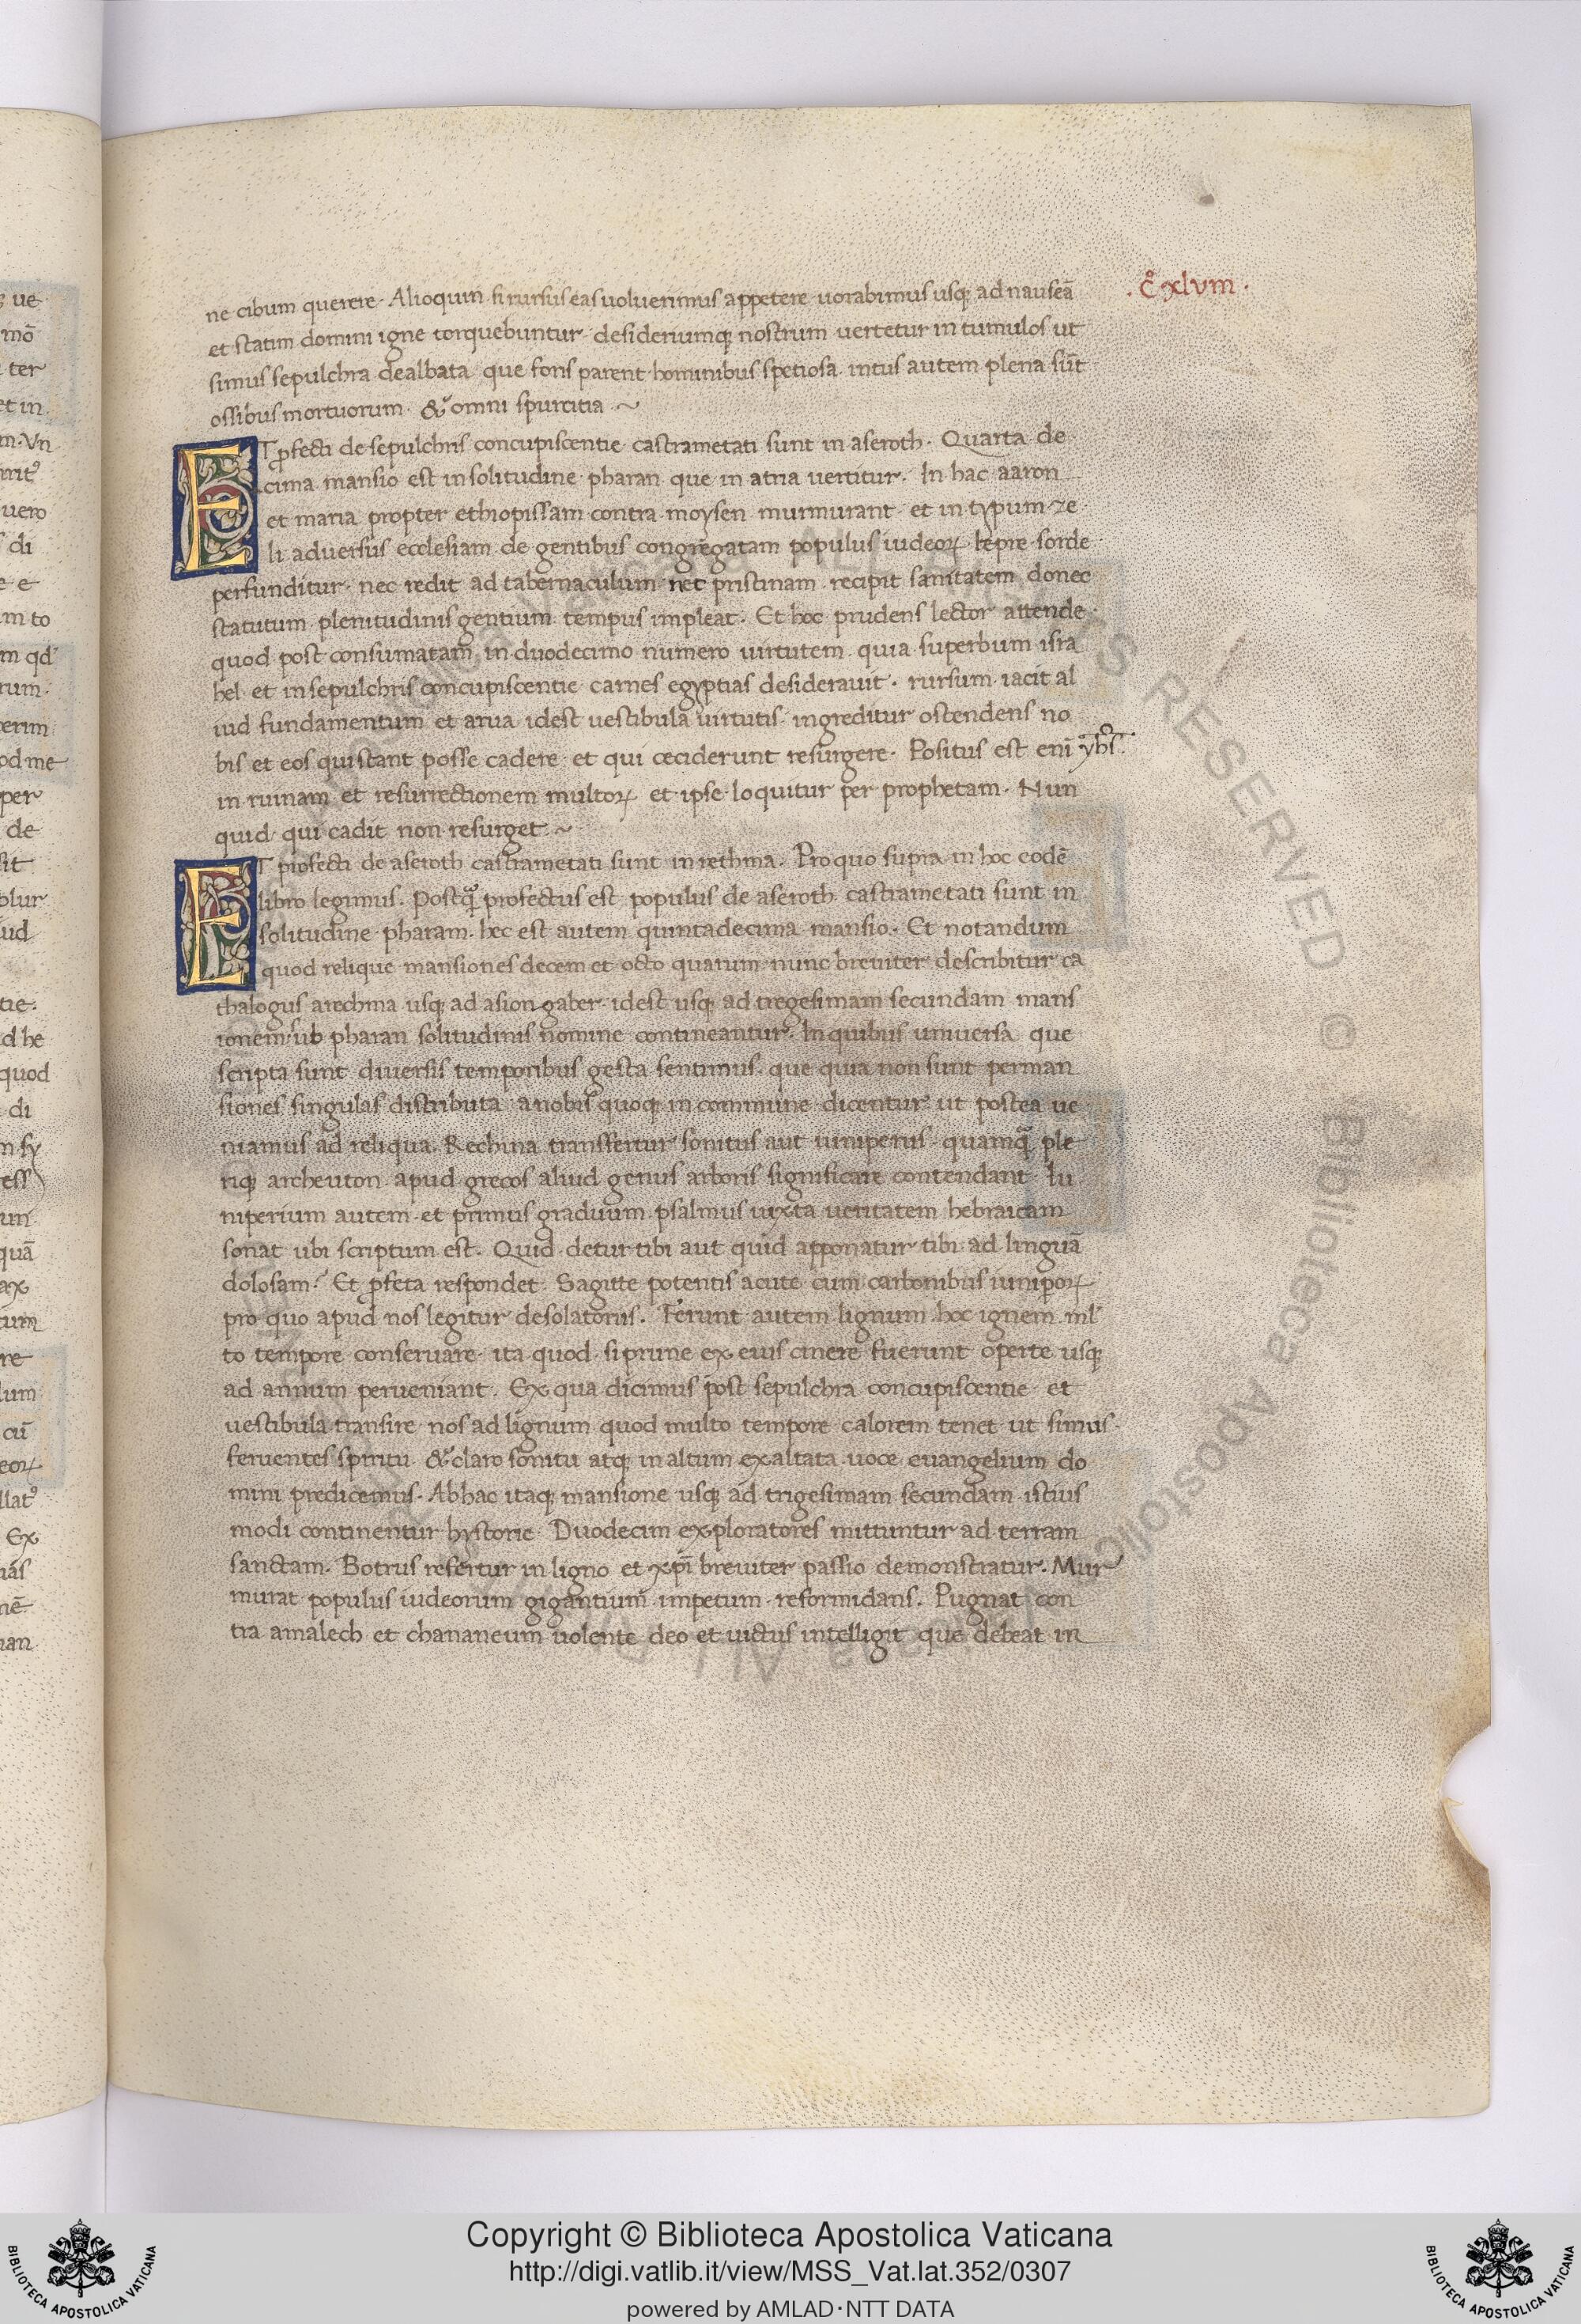 ne cibum querere. Alioquin si rursus eas voluerimus appetere vorabimus usq; ad nauseā
et statim domini igne torquebuntur desideriumq; nostrum vertetur in tumulos ut
simus sepulchra dealbata que foris parent hominibus spetiosa intus autem plena sūt
ossibus mortuorum & omni spurcitia ~
.c̊xlvııı.
ET ꝓfecti de sepulchris concupiscentie castrametati sunt in aseroth. Quarta de
cima mansio est in solitudine pharan que in atria vertitur. In hac aaron
et maria propter ethiopissam contra moysen murmurant et in typum ze
li adversus ecclesiam de gentibus congregatam populus iudeoꝝ lepre sorde
perfunditur nec redit ad tabernaculum nec pristinam recipit sanitatem donec
statutum plenitudinis gentium tempus impleat. Et hoc prudens lector attende
quod post consumatam in duodecimo numero virtutem quia superbum isra
hel et in sepulchris concupiscentie carnes egyptias desideravit. rursum iacit al
iud fundamentum et atria idest vestibula virtutis ingreditur ostendens no
bis et eos qui stant posse cadere et qui ceciderunt resurgere. Positus est enī
in ruinam et resurrectionem multoꝝ et ipse loquitur per prophetam. Nun
quid qui cadit non resurget ~
ET profecti de aseroth castrametati sunt in rethma. Pro quo supra in hoc eodē
libro legimus. Postq̄ profectus est populus de aseroth castrametati sunt in
solitudine pharam. hec est autem quintadecima mansio. Et notandum
quod relique mansiones decem et octo quarum nunc breviter describitur ca
thalogus a rechma usq; ad asion gaber idest usq; ad tregesimam secundam mans
ionem sub pharan solitudinis nomine contineantur. In quibus universa que
scripta sunt diversis temporibus gesta sentimus. que quia non sunt perman
siones singulas distributa a nobis quoq; in commune dicentur ut postea ve
niamus ad reliqua. Rechma transfertur sonitus aut iuniperus quamq̄ ple
riq; archeuton apud grecos aliud genus arboris significare contendant Iu
niperium autem et primus graduum psalmus iuxta veritatem hebraicam
sonat ubi scriptum est. Quid detur tibi aut quid apponatur tibi ad linguā
dolosam? Et ꝓfeta respondet Sagitte potentis acute cum carbonibus iunipoꝝ
pro quo apud nos legitur desolatoriis. Ferunt autem lignum hoc ignem ml'
to tempore conservare ita quod si prune ex eius cinere fuerunt operte usq;
ad annum perveniant. Ex qua dicimus post sepulchra concupiscentie et
vestibula transire nos ad lignum quod multo tempore calorem tenet ut simus
ferventes spiritu & claro sonitu atq; in altum exaltata voce evangelium do
mini predicemus. Ab hac itaq; mansione usq; ad trigesimam secundam istius
modi continentur hystorie. Duodecim exploratores mittuntur ad terram
sanctam. Botrus refertur in ligno et xp̄i breviter passio demonstratur. Mur
murat populus iudeorum gigantium impetum reformidans. Pugnat con
tra amalech et chananeum nolente deo et victus intelligit que debeat in
Copyright © Biblioteca Apostolica Vaticana
http://digi.vatlib.it/view/MSS_Vat.lat.352/0307
powered by AMLAD·NTT DATA
BIBLIOTECA APOSTOLICA VATICANA
BIBLIOTECA APOSTOLICA VATICANA